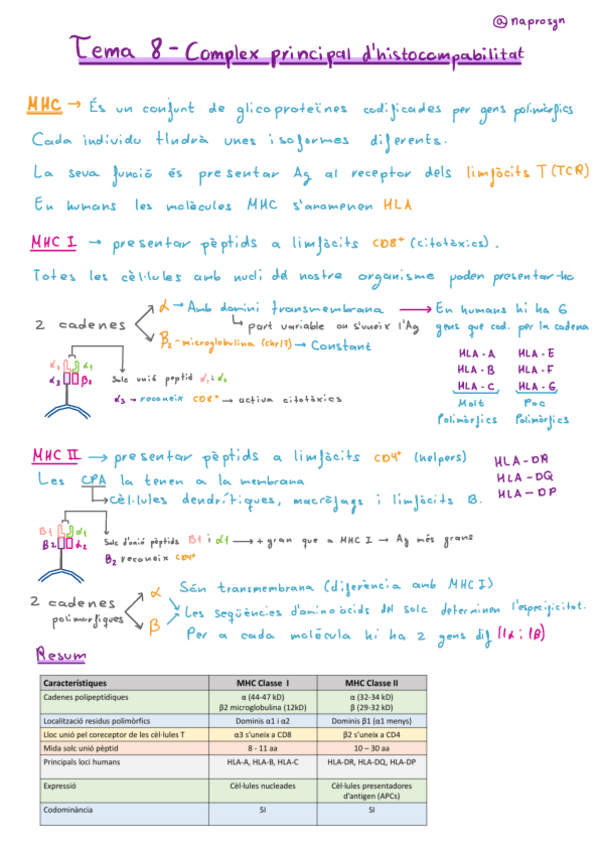 @naprosyn
Tema 8 - Complex principal d'histocompabilitat
MHC → És un conjunt de glicoproteïnes codificades per gens polimòrfics
Cada individu tindrà unes isoformes diferents.
La seva funció és presentar Ag al receptor dels limfòcits T (TCR)
En humans les molècules MHC s'anomenen HLA
MHC I → presentar pèptids a limfòcits CD8+ (citotòxics).
Totes les cèl·lules amb nucli del nostre organisme poden presentar-ho
2 cadenes
α → Amb domini transmembrana → En humans hi ha 6
↳ part variable on s'uneix l'Ag gens que cod. per la cadena
β2-microglobulina (chr17) → Constant
HLA-A HLA-E
HLA-B HLA-F
HLA-C HLA-G
Molt Poc
Polimòrfics Polimòrfics
α2 α1
α3 β2
Solc unió peptid α1 i α2
α3 → reconeix CD8+ → activa citotòxics
MHC II → presentar pèptids a limfòcits CD4+ (helpers)
HLA-DR
HLA-DQ
HLA-DP
Les CPA la tenen a la membrana
↳ cèl·lules dendrítiques, macròfags i limfòcits B.
β1 α1
β2 α2
Solc d'unió pèptids β1 i α1 → + gran que a MHC I → Ag més grans
β2 reconeix CD4+
2 cadenes
polimorfiques
α
β
Són transmembrana (diferència amb MHC I)
Les seqüències d'aminoàcids del solc determinen l'especificitat.
Per a cada molècula hi ha 2 gens dif (1α i 1β)
Resum
Característiques MHC Classe I MHC Classe II
Cadenes polipeptídiques α (44-47 kD) α (32-34 kD)
β2 microglobulina (12kD) β (29-32 kD)
Localització residus polimòrfics Dominis α1 i α2 Dominis β1 (α1 menys)
Lloc unió pel coreceptor de les cèl·lules T α3 s'uneix a CD8 β2 s'uneix a CD4
Mida solc unió pèptid 8 - 11 aa 10 – 30 aa
Principals loci humans HLA-A, HLA-B, HLA-C HLA-DR, HLA-DQ, HLA-DP
Expressió Cèl·lules nucleades Cèl·lules presentadores
d'antigen (APCs)
Codominància SI SI